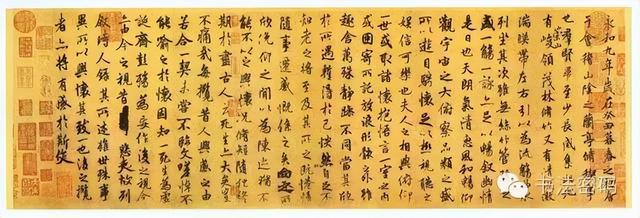 永和九年歲在癸丑暮春之初會
于會稽山陰之蘭亭脩稧事
也群賢畢至少長咸集此地
有崇山峻領茂林脩竹又有清流激
湍暎帶左右引以為流觴曲水
列坐其次雖無絲竹管弦之
盛一觴一詠亦足以暢敘幽情
是日也天朗氣清惠風和暢仰
觀宇宙之大俯察品類之盛
所以遊目騁懷足以極視聽之
娛信可樂也夫人之相與俯仰
一世或取諸懷抱悟言一室之內
或因寄所託放浪形骸之外雖
趣舍萬殊靜躁不同當其欣
於所遇蹔得於己怏然自足不
知老之將至及其所之既惓情
隨事遷感慨係之矣向之所
欣俛仰之閒以為陳迹猶不
能不以之興懷況脩短隨化終
期於盡古人云死生亦大矣豈
不痛哉每攬昔人興感之由
若合一契未嘗不臨文嗟悼不
能喻之於懷固知一死生為虛
誕齊彭殤為妄作後之視今
亦由今之視昔悲夫故列
敘時人錄其所述雖世殊事
異所以興懷其致一也後之攬
者亦將有感於斯文
书法密码